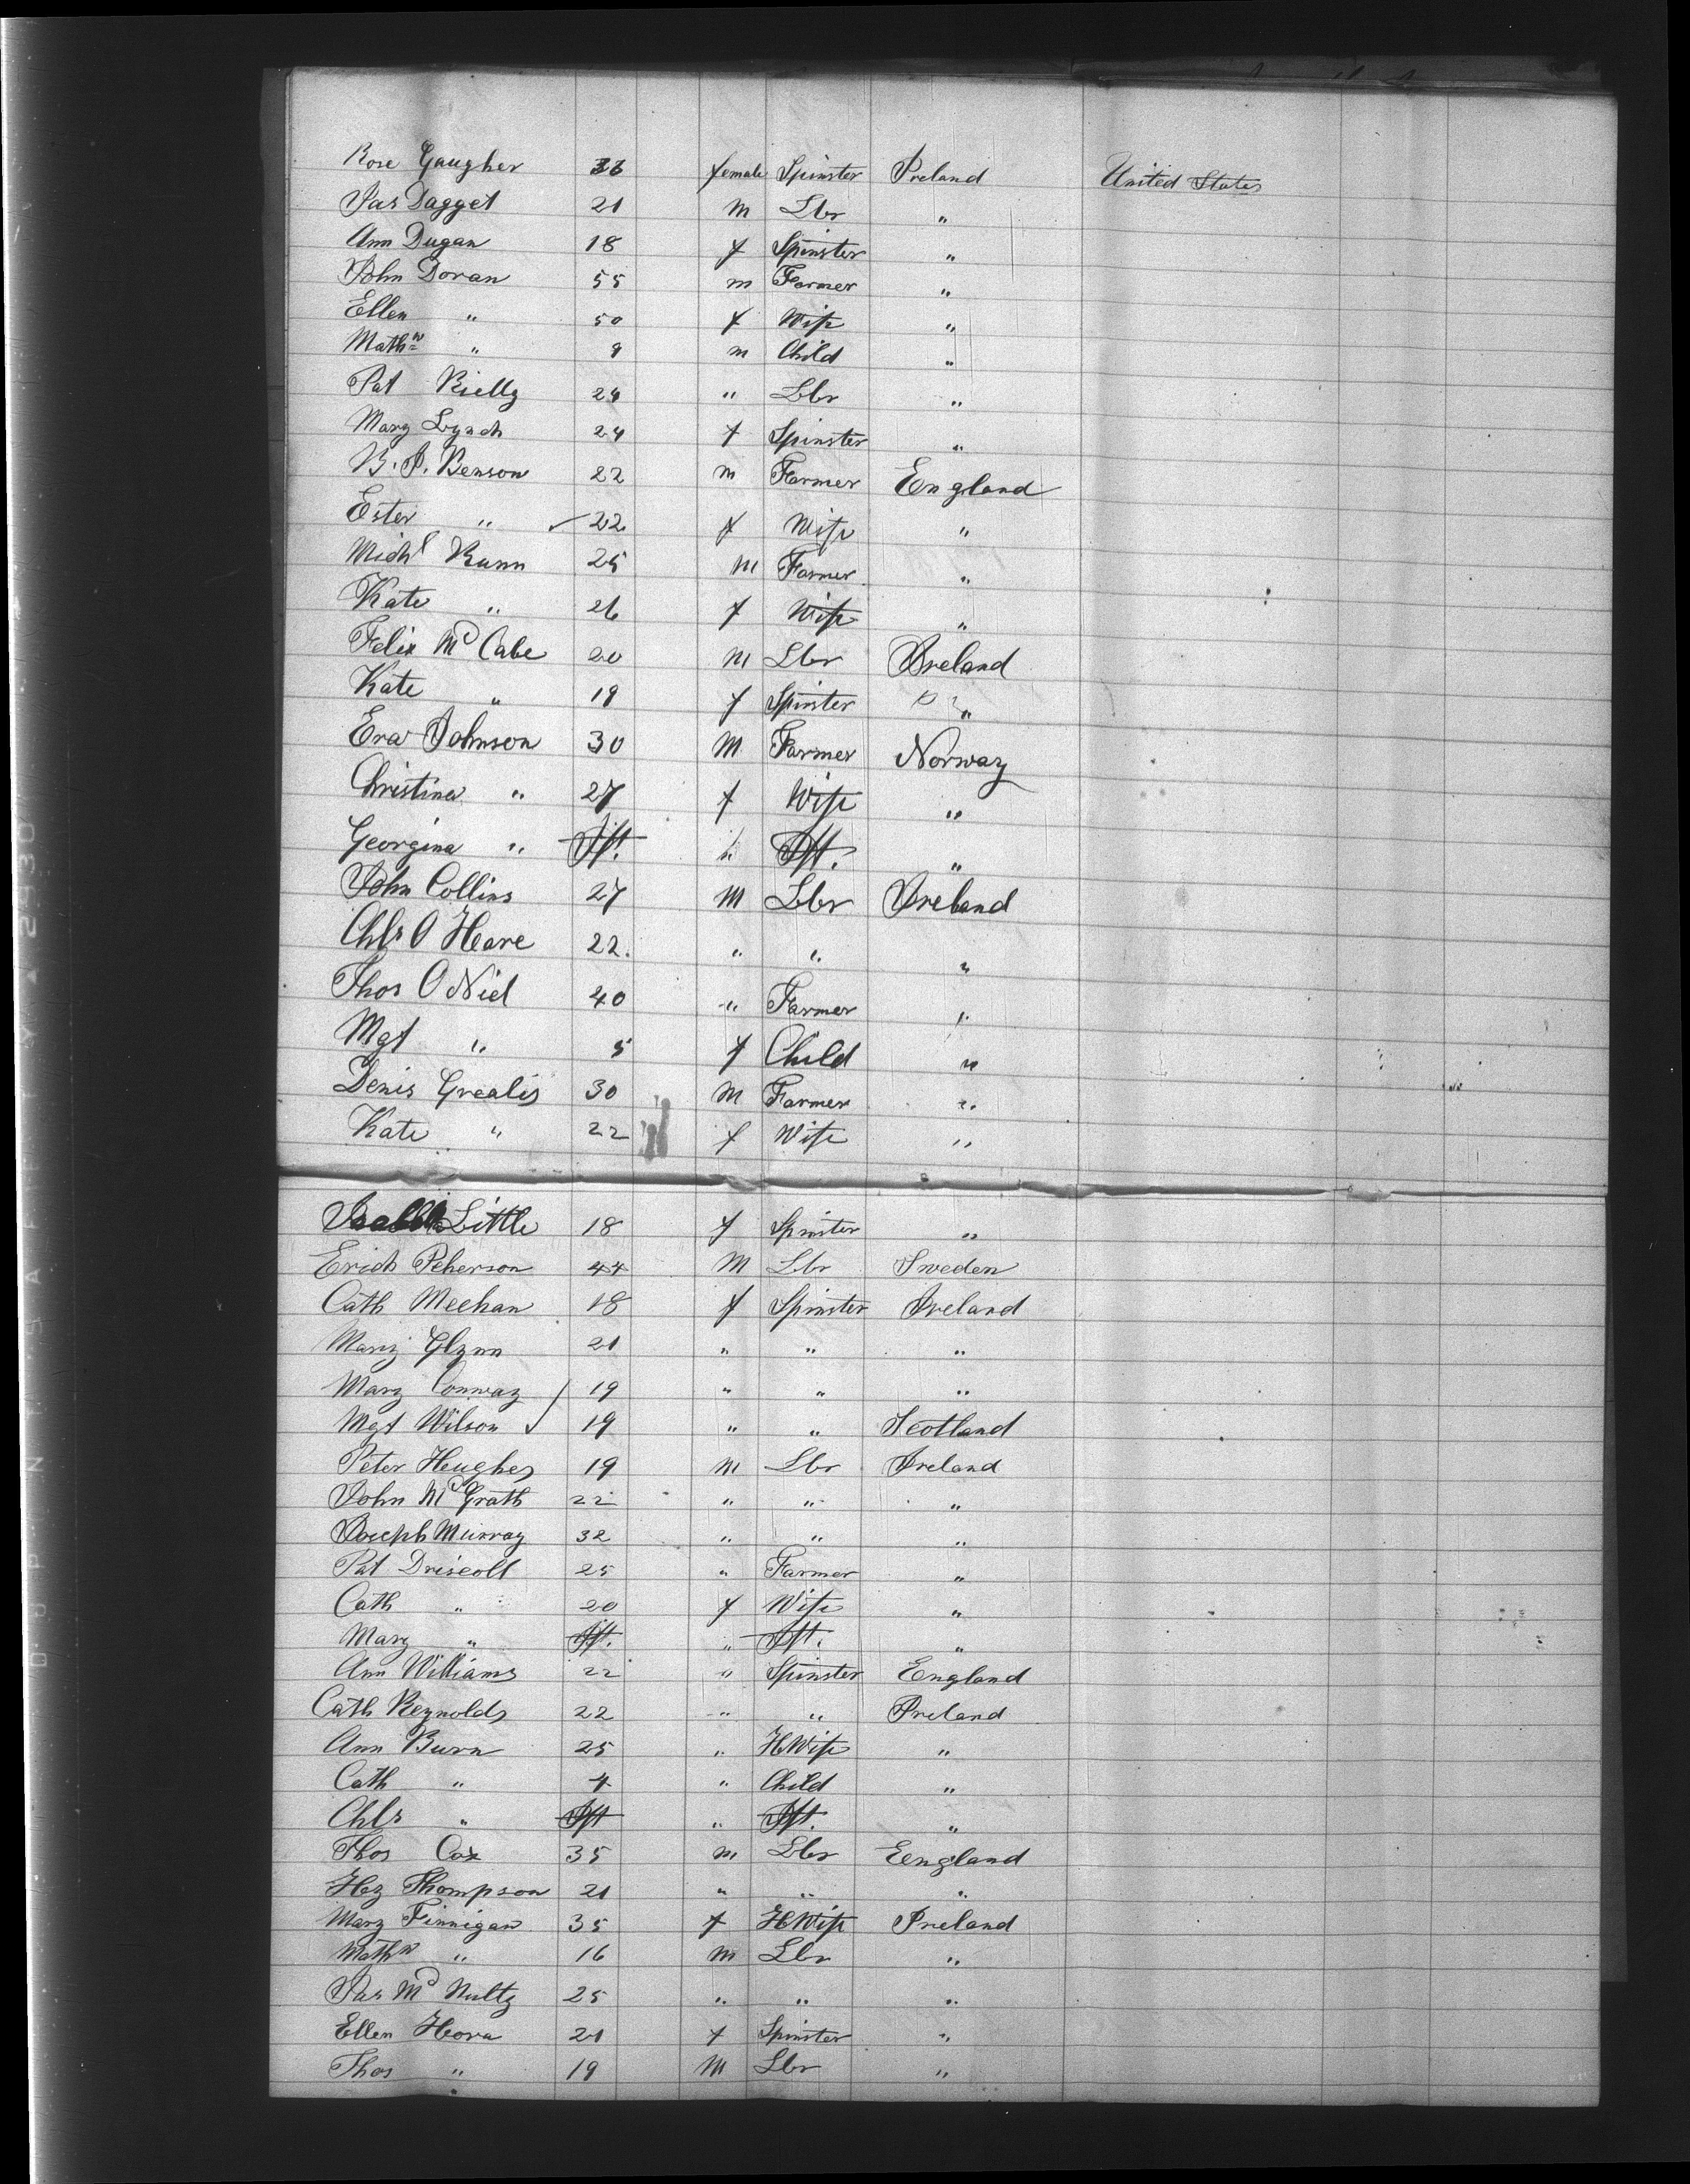 Rose Gaugher 33 female Spinster Ireland United States
Jas Dagget 21 m Lbr "
Ann Dugan 18 f Spinster "
John Doran 55 m Farmer "
Ellen " 50 f Wife "
Mathw " 9 m Child "
Pat Rielly 24 " Lbr "
Mary Lynch 24 f Spinster "
B. J. Benson 22 m Farmer England
Ester " 22 f Wife "
Michl Bunn 25 m Farmer "
Kate " 26 f Wife "
Felix Mc Cabe 20 m Lbr Ireland
Kate " 19 f Spinster "
Era Johnson 30 m Farmer Norway
Christina " 27 f Wife "
Georgina " Ift. " Ift. "
John Collins 27 m Lbr Ireland
Chls O Heare 22. " " "
Thos O Niel 40 " Farmer "
Mgt " 5 f Child "
Denis Grealis 30 m Farmer "
Kate " 22 f Wife "
Little 18 f Spinster "
Erich Peherson 44 m Lbr Sweden
Cath Meehan 18 f Spinster Ireland
Mary Glynn 21 " " "
Mary Conway 19 " " "
Mgt Wilson 19 " " Scotland
Peter Heughes 19 m Lbr Ireland
John Mc Grath 22 " " "
Joseph Murray 32 " " "
Pat Driscoll 25 " Farmer "
Cath " 20 f Wife "
Mary " Ift. " Ift. "
Ann Williams 22 " Spinster England
Cath Reynolds 22 " " Ireland
Ann Burn 25 " H Wife "
Cath " 4 " Child "
Chls " Ift " Ift. "
Thos Cox 35 m Lbr England
Hy Thompson 21 " " "
Mary Finnigan 35 f H Wife Ireland
Mathw " 16 m Lbr "
Jas Mc Nulty 25 " " "
Ellen Hora 21 f Spinster "
Thos " 19 m Lbr "